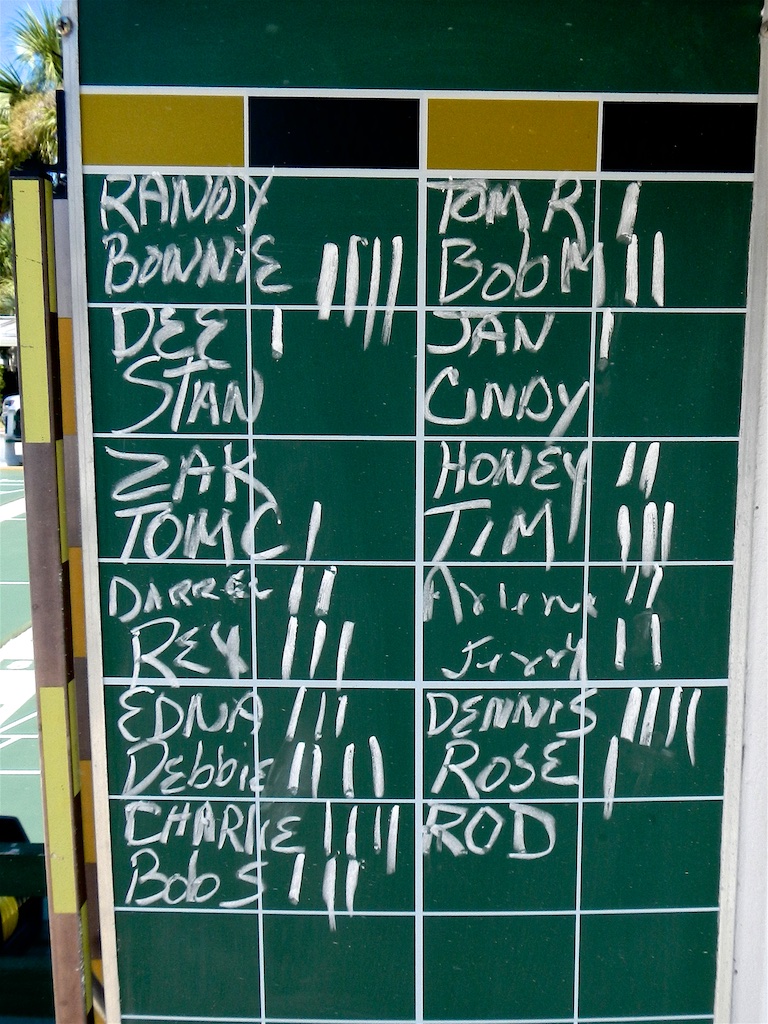 RANDY TOM R |
BONNIE |||| BOB M ||
DEE | JAN |
STAN CINDY
ZAK HONEY ||
TOM C | TIM |||
DARREL || Arlene ||
REY ||| Jerry ||
EDNA ||| DENNIS ||||
Debbie |||| ROSE |
CHARLIE |||| ROD
Bob S |||